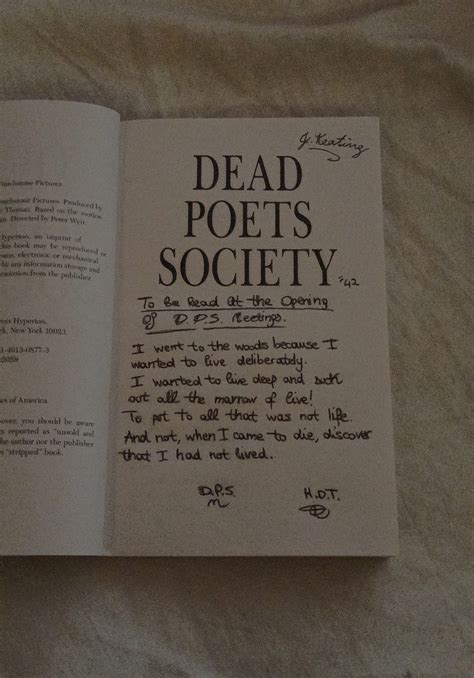 Touchstone Pictures
Touchstone Pictures. Produced by
Thomas. Based on the motion
Directed by Peter Weir.
Hyperion, an imprint of
this book may be reproduced or
means, electronic or mechanical
by any information storage and
permission from the publisher
ress Hyperion,
rk, New York 10023.
3-4013-0877-3
2059
es of America
over, you should be aware
s reported as "unsold and
the author nor the publisher
"stripped" book.
J. Keating
DEAD
POETS
SOCIETY
'42
To Be Read at the Opening
of D.P.S. Meetings.
I went to the woods because I
wanted to live deliberately.
I wanted to live deep and suck
out all the marrow of live!
To put to all that was not life.
And not, when I came to die, discover
that I had not lived..
D.P.S.
H.D.T.